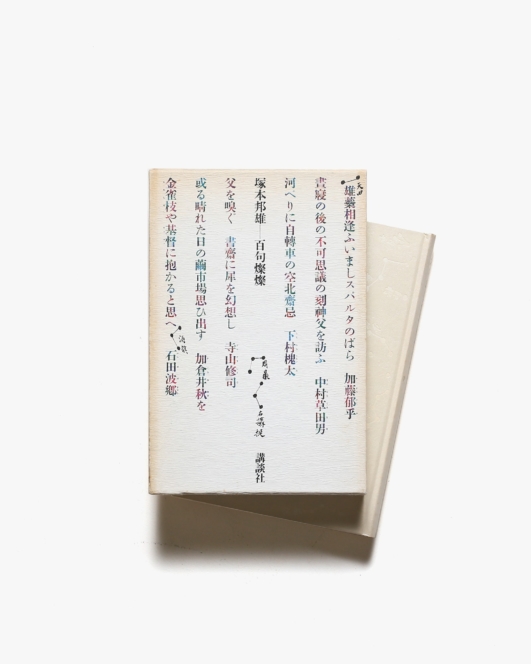 雄蘂相逢ふいましスパルタのばら　加藤郁乎
晝寢の後の不可思議の刻神父を訪ふ　中村草田男
河へりに自轉車の空北齋忌　下村槐太
塚本邦雄—百句燦燦　講談社
父を嗅ぐ　書齋に犀を幻想し　寺山修司
或る晴れた日の繭市場思ひ出す　加倉井秋を
金雀枝や基督に抱かると思へ　石田波郷